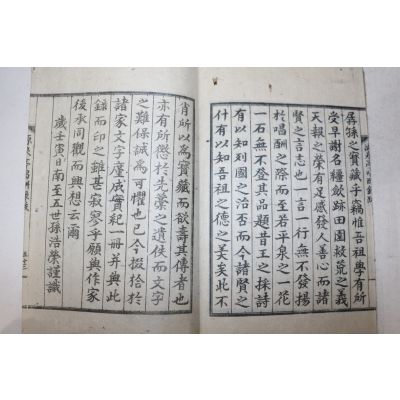 孱孫之寶藏乎竊惟吾祖學有所
受早謝名韁斂跡田園救荒之義
天報之榮有足感發人善心而諸
賢之言志也一言一行無不發揚
於唱酬之際而至若平泉之一花
一石無不登其品題昔王之採詩
有以知列國之治否而今諸賢之
什有以知吾祖之德之美矣此不
肖所以為寶藏而欲壽其傳者也
亦有所慼於先藁之遺佚而文字
之難保誠為可懼也已今掇拾於
諸家文字廑成實紀一冊并與此
錄而印之雖甚寂寥乎願與作家
後承同觀而興想云爾
歲壬寅日南至五世孫浩榮謹識